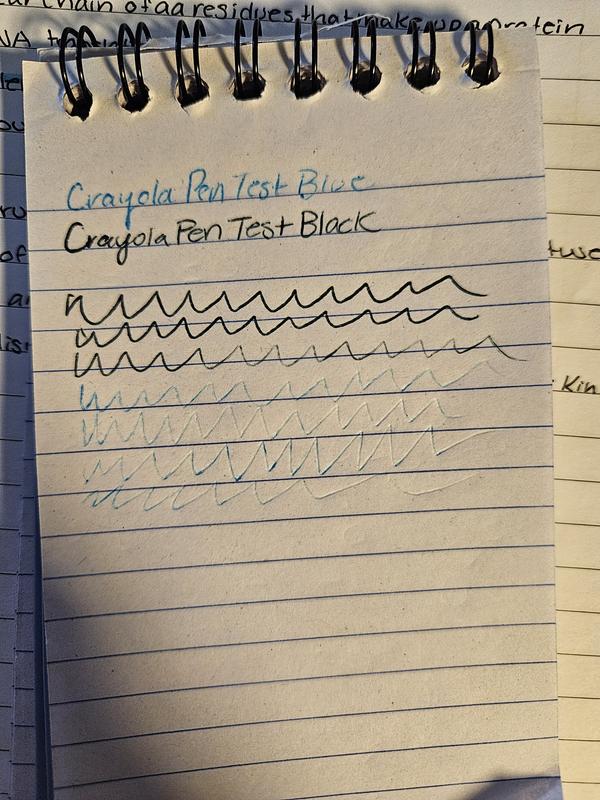 chain of aa residues that make up a protein
NA
Crayola Pen Test Blue
Crayola Pen Test Black
of
Kin